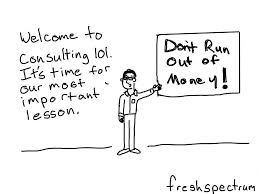 Welcome to
Consulting 101.
It's time for
our most
important
lesson.
Don't Run
Out of
Money!
freshspectrum